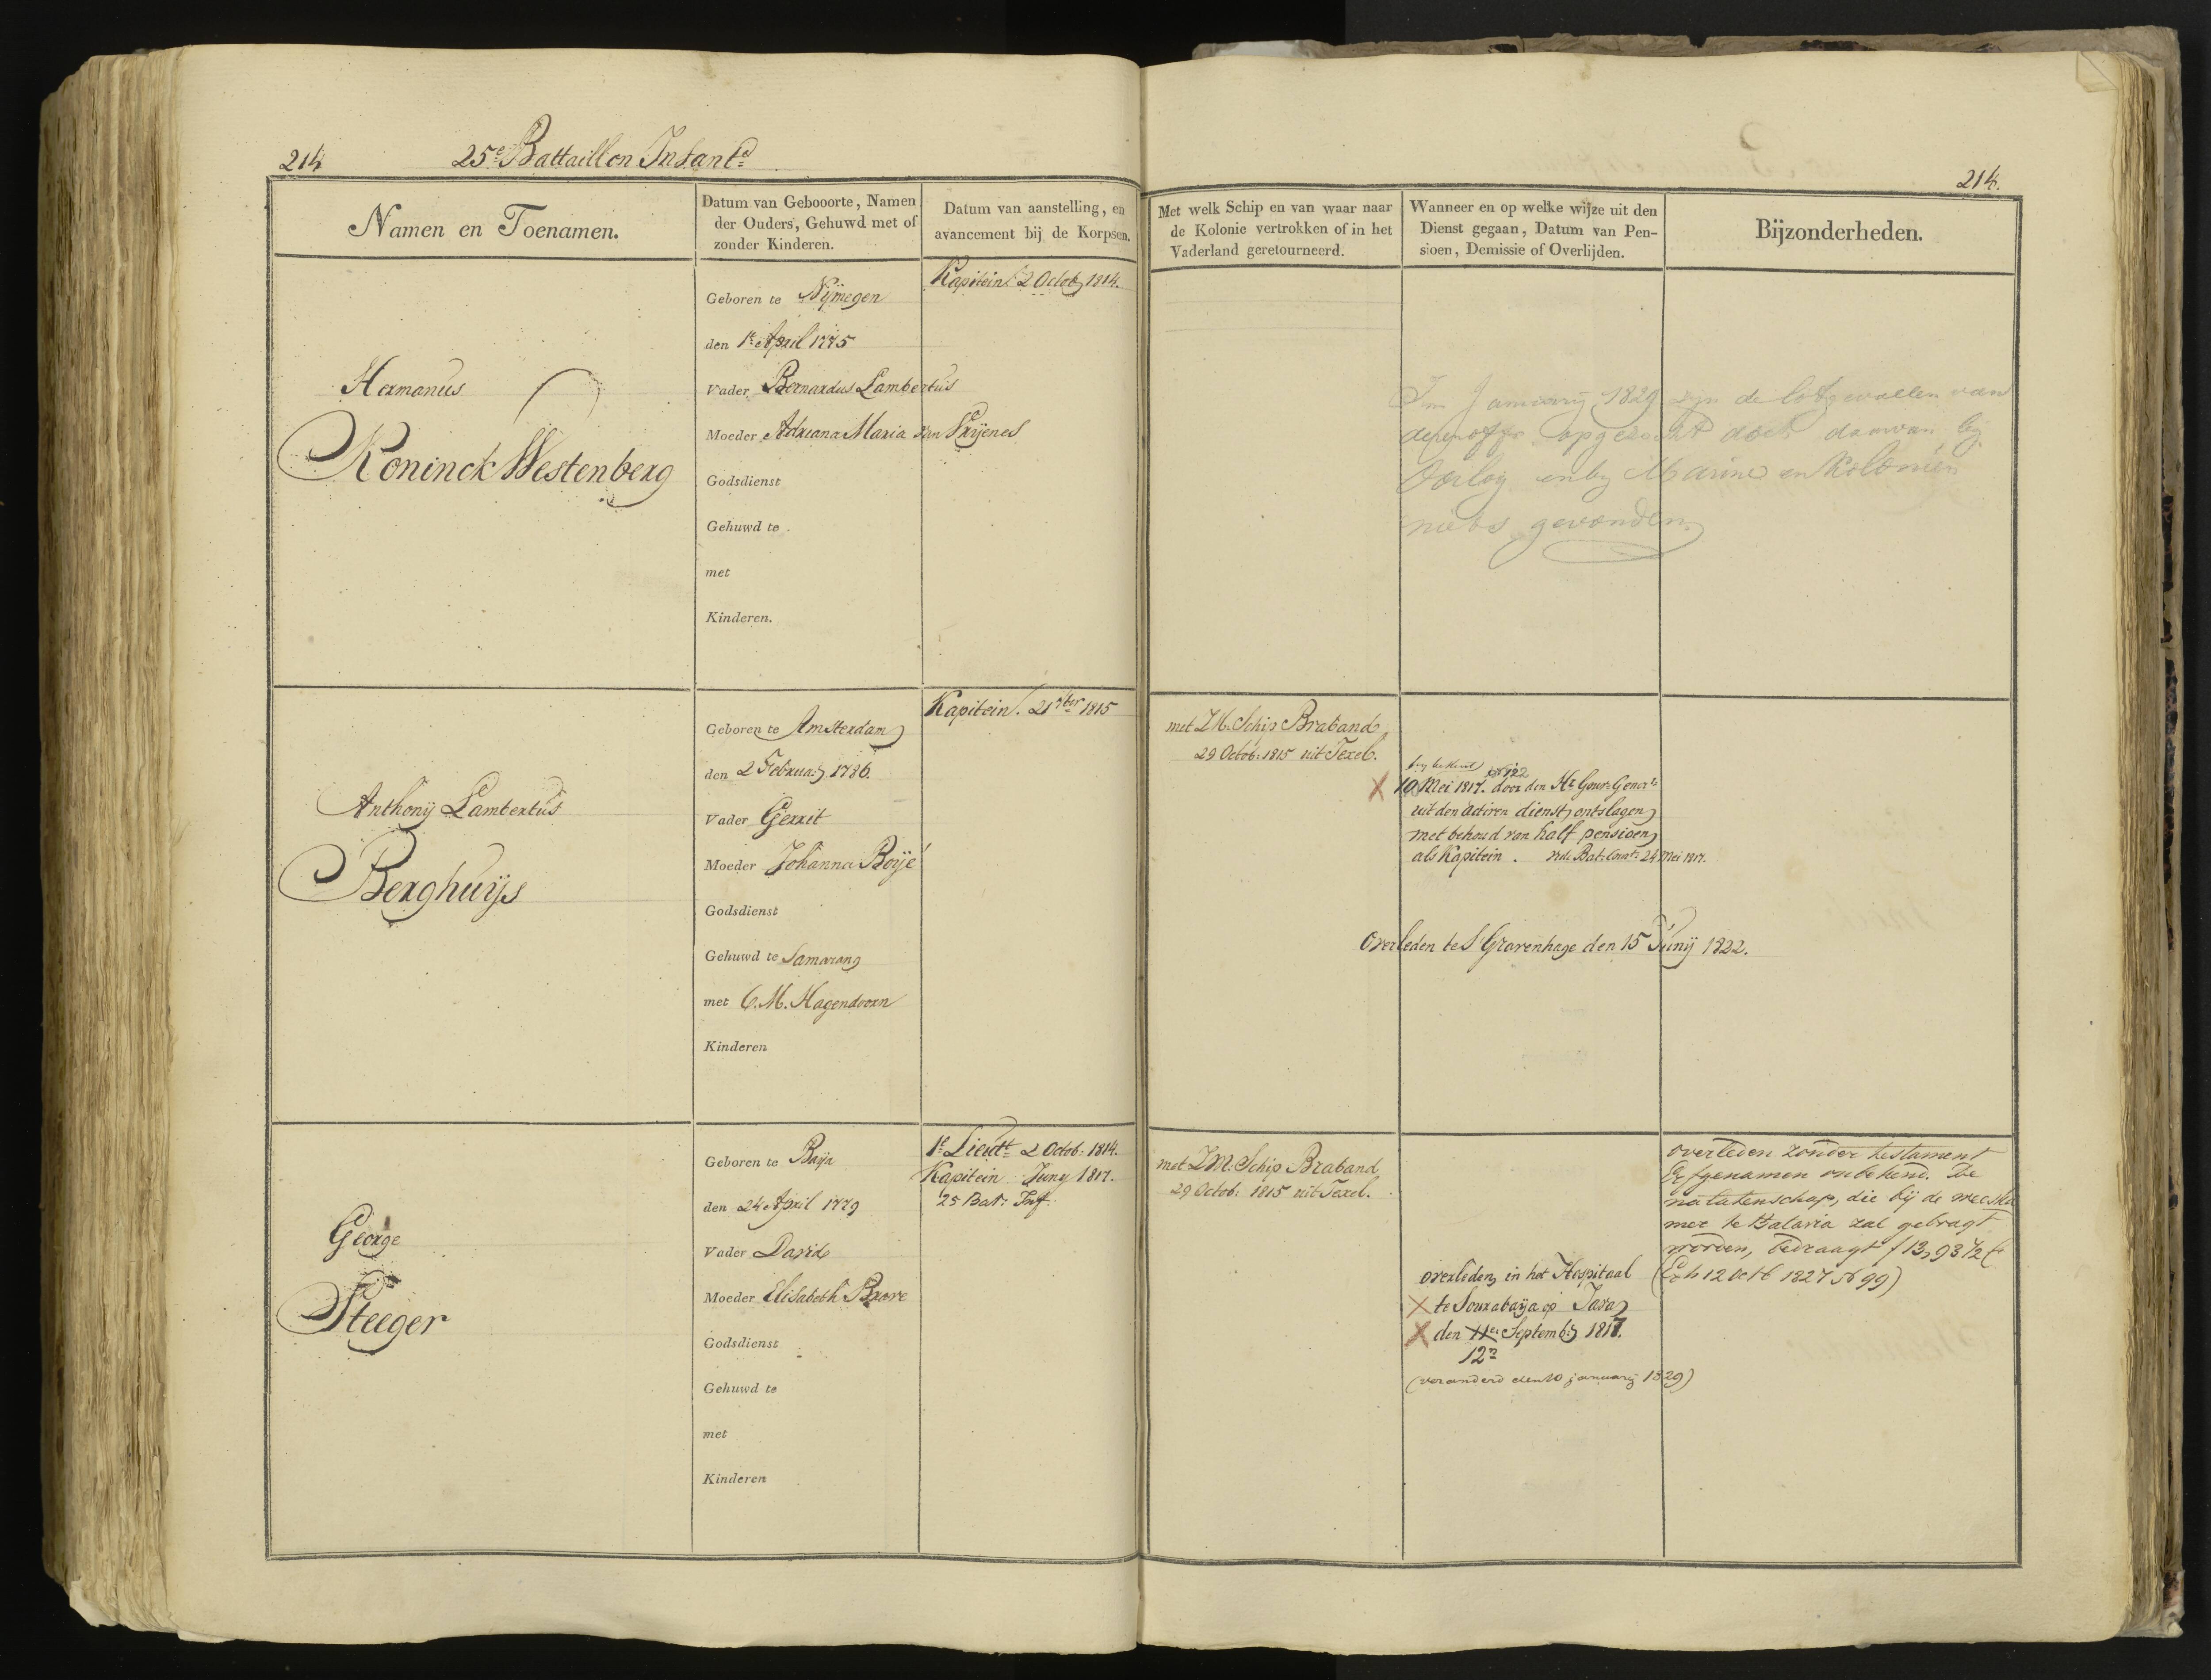 214
25e Battaillon Infante
214.
Namen en Toenamen.
Datum van Gebooorte, Namen
der Ouders, Gehuwd met of
zonder Kinderen.
Datum van aanstelling, en
avancement bij de Korpsen.
Met welk Schip en van waar naar
de Kolonie vertrokken of in het
Vaderland geretourneerd.
Wanneer en op welke wijze uit den
Dienst gegaan, Datum van Pen-
sioen, Demissie of Overlijden.
Bijzonderheden.
Hermanus
Koninck Westenberg
Geboren te Nijmegen
den 1e April 1775
Vader Bernardus Lambertus
Moeder Adriana Maria van
Godsdienst
Gehuwd te
met
Kinderen.
Kapitein 2 Octob 1814.
Im January 1829 zijn de lotgevallen van
dezen offr opgezocht doch daarvan bij
Oorlog en by Marine en Kolonien
niets gevonden
Anthonij Lambertus
Berghuijs
Geboren te Amsterdam
den 2 Februarij 1786.
Vader Gerrit
Moeder Johanna Boijé
Godsdienst
Gehuwd te Samarang
met C. M. Hagendoorn
Kinderen
Kapitein. 21 1815
met Z M. Schip Braband
29 Octob: 1815 uit Texel.
bij besluit No 122
X 10 Mei 1817. door den Hr Gouvr Generl
uit den activen dienst ontslagen
met behoud van half pensioen
als Kapitein. vide Bat: Cour: 24 Mei 1817.
Overleden te S Gravenhage den 15 Junij 1822.
George
Steeger
Geboren te
den 24 April 1779
Vader David
Moeder Elisabeth
Godsdienst
Gehuwd te
met
Kinderen
1e Lieutt 2 Octob: 1814.
Kapitein Juny 1817.
25 Bat: Inf.
met Z M. Schip Braband
29 Octob: 1815 uit Texel.
overleden in het Hospitaal
X te Sourabaija op Java
X den 11en Septemb 1817.
12n
(veranderd den 10 januarij 1829)
overleden zonder testament
Erfgenamen onbekend. De
natatenschap, die bij de weeska
mer te Batavia zal gebragt
worden, bedraagt f 13,93 1/2
(Exh 12 Octb 1827 No 99)